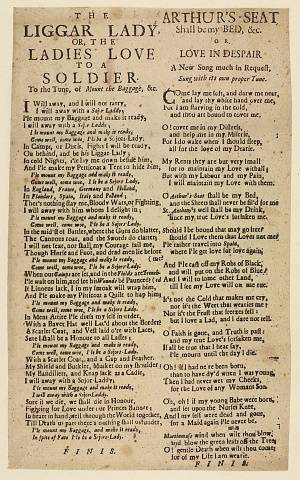 THE
LIGGAR LADY,
OR, THE
LADIES LOVE
TO A
SOLDIER.
To the Tune, of Mount the Baggage, &c.
I Will away, and I will not tarry,
I will away with a Sojer Laddy;
Ple mount my Baggage and make it ready,
I will away with a Sojer Laddy;
Ple mount my Baggage and make it ready,
Come well, come wae, I'le be a Sojers Lady.
In Camps, or Duels, Fights I will be ready,
Or behind, and be his Liggar Lady;
In cold Nights, I'le lay me down beside him,
And I'le make my Petticoat a Tent to hide him,
I'le mount my Baggage and make it ready,
Come well, come wae, I'le be a Sojers Lady.
In England, France, Germany and Holland,
In Flanders, Spain, Italy and Poland;
Ther's nothing fears me, Bloody Wars, or Fighting,
I will away with him whom I delight in;
I'le mount my Baggage and make it ready,
Come well, come wae, I'le be a Sojers Lady.
In the midst of Battles, where the Guns do blatter,
The Cannons roar, and the Swords do clatter,
I will not fear, nor shall my Courage fail me,
Though Horse and Foot, and dead men lie before
I'le mount my Baggage and make it ready,
Come well, come wae, I'le be a Sojers Lady.
I'le mount my Baggage and make it ready,
Come well, come wae, I'le be a Sojers Lady.
In Mens Attire I'le dash my self in order,
With a Baver Hat well Lac'd about the Border
A Scarlet Coat, and Vest laid o're with Laces,
Sure I shall be a Honour to all Ladies;
I'le mount my Baggage and make it ready,
Come well, come wae, I'le be a Sojers Lady.
With a Scarlet Coat, and a Cap and Feather,
My Shield and Buckler, Musket on my shoulder
My Bandiliers, and Knap sack as a Caddy,
I will away with a Sojer Laddy;
I'le mount my Baggage, and make it ready,
I will away with a Sojer Laddy.
Sure if we die, we shall die in Honour,
Fighting for Love under the Princes Banner;
In heart in hand, jett through the World together,
Till Death us part there's nothing shall us
I'le mount my Baggage, and make it ready,
In spite of Fate I'le be a Sojers Lady.
FINIS.
ARTHUR'S-SEAT
Shall be my BED, &c.
OR,
LOVE IN DESPAIR
A New Song much in Request,
Sung with its own proper Tune.
COme lay me soft, and draw me near,
and lay thy white hand over me,
For I am starving in the cold,
and thou art bound to cover me.
O! cover me in my Distress,
and help me in my Miserie,
For I do wake when I should sleep,
all for the love of my Dearie.
My Rents they are but very small
for to maintain my Love withall
But with my Labour and my Pain,
I will maintain my Love with them.
O Arthur's-Seat shall be my Bed,
and the Sheets shall never be fil'd for me
St. Anthony's well shall be my Drink,
Since my true Love's forsaken me.
Should I be bound that may go free?
should I Love them that Loves not me?
I'le rather travel into Spain,
Where I'le get love for love again.
And I'le cast off my Robs of Black,
and will put on the Robs of Blue
And I will to some other Land,
till I see my Love will on me rue.
It's not the Cold that makes me cry,
nor it's the Weet that wearies me;
Nor it's the Frost that freezes fell;
but I love a Lad, and I dare not tell.
O Faith is gone, and Truth is past;
and my true Love's forsaken me,
If all be true that I hear say,
I'le mourn until the day I die.
Oh! if I had ne're been born,
than to have dy'd when I was young,
Then I had never wet my Cheeks,
for the Love of any Womans Son.
Oh, oh! if my young Babe were born,
and set upon the Nurses Knee,
And my self were dead and gone,
for a Maid again I'le never be.
Martinmas's wind when wilt thou blow,
and blow the green leafs off the Tree
O! gentle Death when wilt thou come?
for of my Life I am wearie.
FINIS.